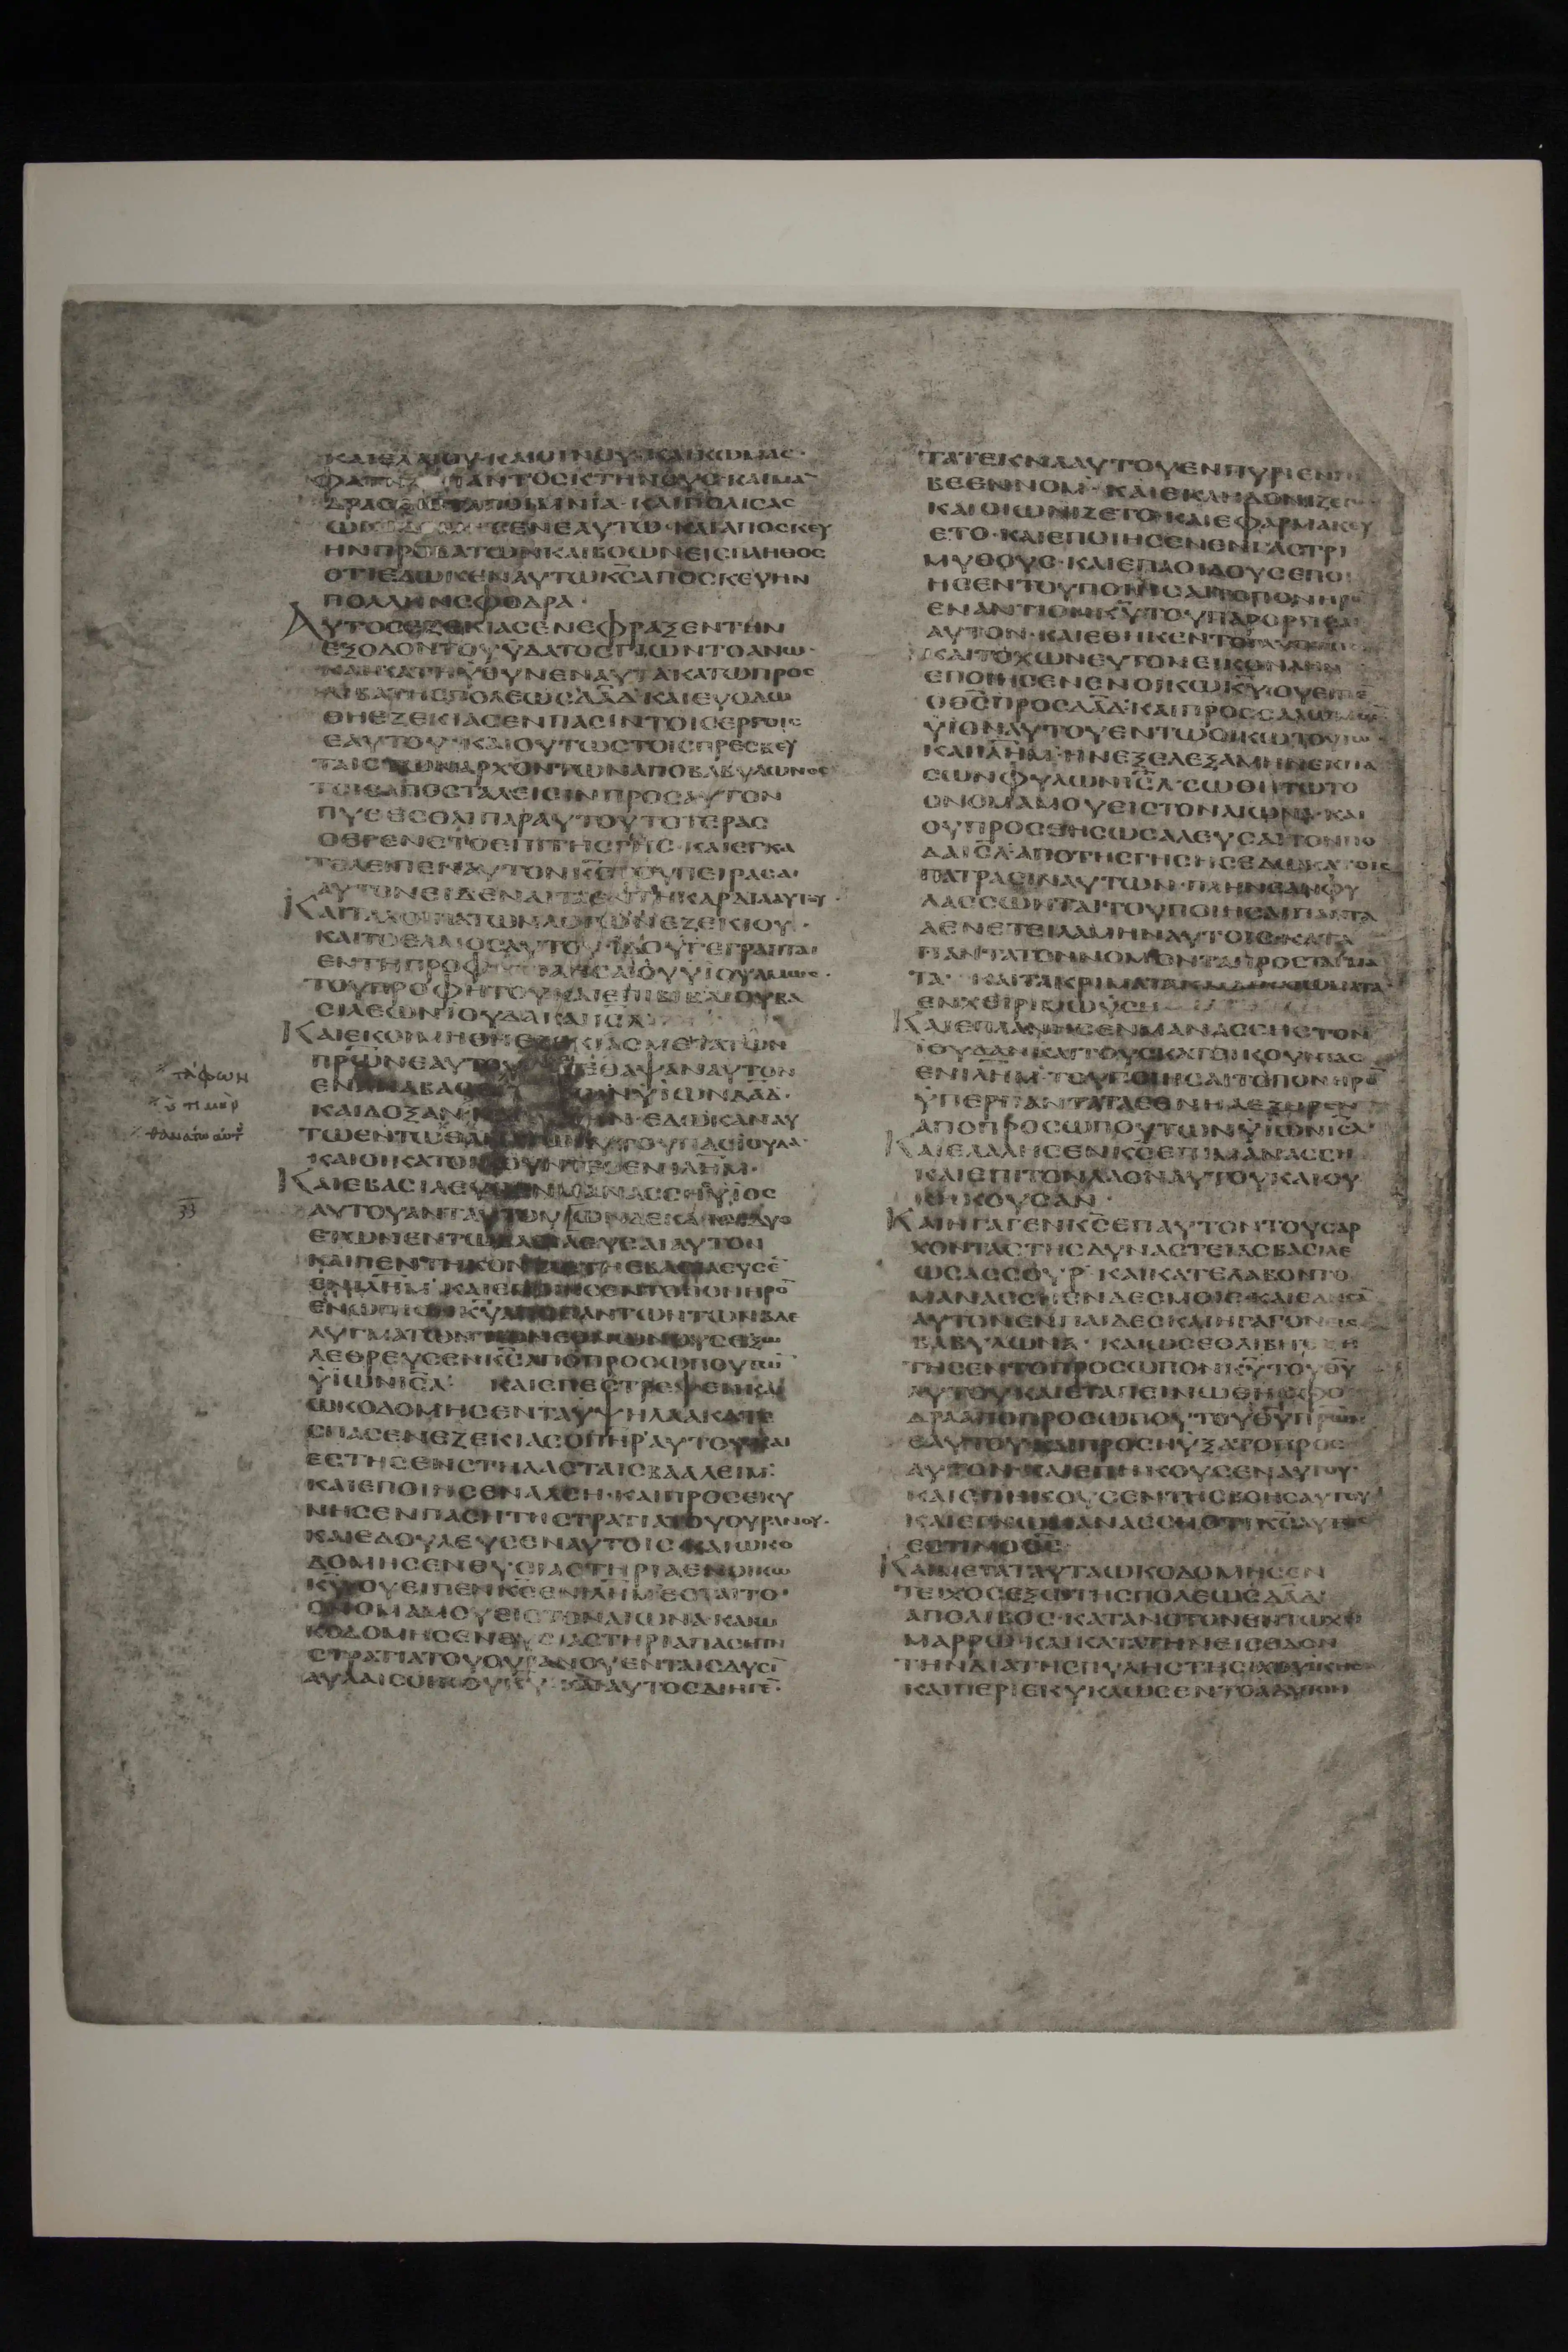 ΚΑΙΕΛΑΙΟΥ·ΚΑΙΟΙΝΟΥ·ΚΑΙΚΩΜΑΣ·
ΠΑΝΤΟCΚΤΗΝΟΥC·ΚΑΙΜΑ
ΔΡΑC ΠΟΙΜΝΙΑ·ΚΑΙΠΟΛΙCΑC
ΕΝΕΑΥΤΩ·ΚΑΙΑΠΟCΚΕΥ
ΗΝΠΡΟΒΑΤΩΝΚΑΙΒΟΩΝΕΙCΠΛΗΘΟC
ΟΤΙΕΔΩΚΕΝΑΥΤΩΚCΑΠΟCΚΕΥΗΝ
ΠΟΛΛΗΝCΦΟΔΡΑ·
ΑΥΤΟCΕΖΕΚΙΑCΕΝΕΦΡΑΞΕΝΤΗΝ
ΕΞΟΔΟΝΤΟΥΥΔΑΤΟCΓΙΩΝΤΟΑΝΩ·
ΚΑΙΚΑΤΗΥΘΥΝΕΝΑΥΤΑΚΑΤΩΠΡΟC
ΛΙΒΑΤΗCΠΟΛΕΩCΔΑΔ·ΚΑΙΕΥΟΔΩ
ΘΗΕΖΕΚΙΑCΕΝΠΑCΙΝΤΟΙCΕΡΓΟΙC
ΕΑΥΤΟΥ·ΚΑΙΟΥΤΩCΤΟΙCΠΡΕCΒΕΥ
ΤΑΙCΤΩΝΑΡΧΟΝΤΩΝΑΠΟΒΑΒΥΛΩΝΟC
ΤΟΙCΑΠΟCΤΑΛΕΙCΙΝΠΡΟCΑΥΤΟΝ
ΠΥΘΕCΘΑΙΠΑΡΑΥΤΟΥΤΟΤΕΡΑC
ΟΕΓΕΝΕΤΟΕΠΙΤΗCΓΗC·ΚΑΙΕΓΚΑ
ΤΕΛΕΙΠΕΝΑΥΤΟΝΚCΤΟΥΠΕΙΡΑCΑΙ
ΑΥΤΟΝΕΙΔΕΝΑΙΤΑΕΝΤΗΚΑΡΔΙΑΑΥΤΟΥ·
ΚΑΙΤΑΛΟΙΠΑΤΩΝΛΟΓΩΝΕΖΕΚΙΟΥ·
ΚΑΙΤΟΕΛΑΙΟCΑΥΤΟΥ·ΙΔΟΥΓΕΓΡΑΠΤΑΙ
ΕΝΤΗΠΡΟΦ ΗCΑΙΟΥΥΙΟΥΑΜΩC·
ΤΟΥΠΡΟΦΗΤΟΥΚΑΙΕΠΙΒΙΒΛΙΟΥΒΑ
CΙΛΕΩΝΙΟΥΔΑΚΑΙΙCΛ
ΚΑΙΕΚΟΙΜΗΘΗΕΖΕΚΙΑCΜΕΤΑΤΩΝ
ΠΡΩΝΕΑΥΤΟΥ ΕΘΑΨΑΝΑΥΤΟΝ
ΕΝΑΝΑΒΑC ΥΙΩΝΔΑΔ·
ΚΑΙΔΟΞΑΝ ΕΔΩΚΑΝΑΥ
ΤΩΕΝΤΩΘΑ ΑΥΤΟΥΠΑCΙΟΥΔΑ
ΚΑΙΟΙΚΑΤΟΙΚΟΥΝΤΕCΕΝΙΛΗΜ·
ΚΑΙΕΒΑCΙΛΕΥCΕΝΜΑΝΑCCΗΥΙΟC
ΑΥΤΟΥΑΝΤΑΥΤΟΥ ΔΕΚΑ
ΕΤΩΝΕΝΤΩΒΑCΙΛΕΥCΑΙΑΥΤΟΝ
ΚΑΙΠΕΝΤΗΚΟΝΤΑ ΕΒΑCΙΛΕΥCΕ
ΕΝΙΛΗΜ·ΚΑΙΕΠΟΙΗCΕΝΤΟΠΟΝΗΡΟ
ΕΝΩΠΙΟΝΚΥΑΠΟΠΑΝΤΩΝΤΩΝΒΔΕ
ΛΥΓΜΑΤΩΝΤΩΝΕΘΝΩΝΟΥCΕΞΩ
ΛΕΘΡΕΥCΕΝΚCΑΠΟΠΡΟCΩΠΟΥΤΩ
ΥΙΩΝΙCΛ· ΚΑΙΕΠΕCΤΡΕΨΕΝΚΑΙ
ΩΚΟΔΟΜΗCΕΝΤΑΥΨΗΛΑΑΚΑΤΕ
CΠΑCΕΝΕΖΕΚΙΑCΟΠΗΡΑΥΤΟΥΚΑΙ
ΕCΤΗCΕΝCΤΗΛΑCΤΑΙCΒΑΑΛΕΙΜ:
ΚΑΙΕΠΟΙΗCΕΝΑΛCΗ·ΚΑΙΠΡΟCΕΚΥ
ΝΗCΕΝΠΑCΗΤΗCΤΡΑΤΙΑΤΟΥΟΥΡΑΝΟΥ·
ΚΑΙΕΔΟΥΛΕΥCΕΝΑΥΤΟΙC·ΚΑΙΩΚΟ
ΔΟΜΗCΕΝΘΥCΙΑCΤΗΡΙΑΕΝΟΙΚΩ
ΚΥΟΥΕΙΠΕΝΚCΕΝΙΛΗΜΕCΤΑΙΤΟ·
ΟΝΟΜΑΜΟΥΕΙCΤΟΝΑΙΩΝΑ·ΚΑΙΩ
ΚΟΔΟΜΗCΕΝΘΥCΙΑCΤΗΡΙΑΠΑCΗΤΗ
CΤΡΑΤΙΑΤΟΥΟΥΡΑΝΟΥΕΝΤΑΙCΔΥCΙ
ΑΥΛΑΙCΟΙΚΟΥΚΥ· ΚΑΙΑΥΤΟCΔΙΗΓΕ·
τάφων
υπικερ
θανάτω αυτ
33
ΤΑΤΕΚΝΑΑΥΤΟΥΕΝΠΥΡΙΕΝΓ
ΒΕΕΝΝΟΜ·ΚΑΙΕΚΛΗΔΟΝΙΖΕΤΟ
ΚΑΙΟΙΩΝΙΖΕΤΟ·ΚΑΙΕΦΑΡΜΑΚΕΥ
ΕΤΟ·ΚΑΙΕΠΟΙΗCΕΝΕΝΓΑCΤΡΙ
ΜΥΘΟΥC·ΚΑΙΕΠΑΟΙΔΟΥCΕΠΟΙ
ΗCΕΝΤΟΥΠΟΙΗCΑΙΤΟΠΟΝΗΡΟ
ΕΝΑΝΤΙΟΝΚΥΤΟΥΠΑΡΟΡΓΙCΑΙ
ΑΥΤΟΝ·ΚΑΙΕΘΗΚΕΝΤΟΓΛΥΠΤΟΝ
ΚΑΙΤΟΧΩΝΕΥΤΟΝΕΙΚΟΝΑΗΝ
ΕΠΟΙΗCΕΝΕΝΟΙΚΩΚΥΟΥΕΙΠΕ
ΟΘCΠΡΟCΔΑΔ·ΚΑΙΠΡΟCCΑΛΩΜΩ
ΥΙΟΝΑΥΤΟΥΕΝΤΩΟΙΚΩΤΟΥΤΩ·
ΚΑΙΙΛΗΜ·ΗΝΕΞΕΛΕΞΑΜΗΝΕΚΠΑ
CΩΝΦΥΛΩΝΙCΛ·CΩΘΗΤΩΤΟ
ΟΝΟΜΑΜΟΥΕΙCΤΟΝΑΙΩΝΑ·ΚΑΙ
ΟΥΠΡΟCΘΗCΩCΑΛΕΥCΑΙΤΟΝΠΟ
ΔΑΙCΛ·ΑΠΟΤΗCΓΗCΗCΕΔΩΚΑΤΟΙC
ΠΑΤΡΑCΙΝΑΥΤΩΝ·ΠΛΗΝΕΑΝΦΥ
ΛΑCCΩΝΤΑΙΤΟΥΠΟΙΗCΑΙΠΑΝΤΑ
ΑΕΝΕΤΕΙΛΑΜΗΝΑΥΤΟΙC·ΚΑΤΑ
ΠΑΝΤΑΤΟΝΝΟΜΟΝΤΑΠΡΟCΤΑΓΜΑ
ΤΑ· ΚΑΙΤΑΚΡΙΜΑΤΑ
ΕΝΧΕΙΡΙΜΩΥCΗ
ΚΑΙΕΠΛΑΝΗCΕΝΜΑΝΑCCΗCΤΟΝ
ΙΟΥΔΑΝΚΑΙΤΟΥCΚΑΤΟΙΚΟΥΝΤΑC
ΕΝΙΛΗΜ·ΤΟΥΠΟΙΗCΑΙΤΟΠΟΝΗΡΟ
ΥΠΕΡΠΑΝΤΑΤΑΕΘΝΗΑΕΞΗΡΕΝ
ΑΠΟΠΡΟCΩΠΟΥΤΩΝΥΙΩΝΙCΛ·
ΚΑΙΕΛΑΛΗCΕΝΚCΕΠΙΜΑΝΑCCΗ
ΚΑΙΕΠΙΤΟΝΛΑΟΝΑΥΤΟΥΚΑΙΟΥ
ΚΗΚΟΥCΑΝ·
ΚΑΙΗΓΑΓΕΝΚCΕΠΑΥΤΟΝΤΟΥCΑΡ
ΧΟΝΤΑCΤΗCΔΥΝΑCΤΕΙΑCΒΑCΙΛΕ
ΩCΑCCΟΥΡ·ΚΑΙΚΑΤΕΛΑΒΟΝΤΟ
ΜΑΝΑCCΗΕΝΔΕCΜΟΙC·ΚΑΙΕΔΗCΑ
ΑΥΤΟΝΕΝΠΑΙΔΕCΚΑΙΗΓΑΓΟΝΕΙC
ΒΑΒΥΛΩΝΑ·ΚΑΙΩCΕΘΛΙΒΗ ΖΗ
ΤΗCΕΝΤΟΠΡΟCΩΠΟΝΚΥΤΟΥΘΥ
ΑΥΤΟΥΚΑΙΕΤΑΠΕΙΝΩΘΗCΦΟ
ΔΡΑΑΠΟΠΡΟCΩΠΟΥΤΟΥΘΥΠΡΩΝ
ΕΑΥΤΟΥ·ΚΑΙΠΡΟCΗΥΞΑΤΟΠΡΟC
ΑΥΤΟΝ·ΚΑΙΕΠΗΚΟΥCΕΝΑΥΤΟΥ·
ΚΑΙΕΠΗΚΟΥCΕΝΤΗCΒΟΗCΑΥΤΟΥ
ΚΑΙΕΓΝΩΜΑΝΑCCΗΟΤΙΚCΑΥΤΟC
ΕCΤΙΝΟΘC·
ΚΑΙΜΕΤΑΤΑΥΤΑΩΚΟΔΟΜΗCΕΝ
ΤΕΙΧΟCΕΞΩΤΗCΠΟΛΕΩCΔΑΔ·
ΑΠΟΛΙΒΟC·ΚΑΤΑΝΟΤΟΝΕΝΤΩΧΙ
ΜΑΡΡΩ·ΚΑΙΚΑΤΑΤΗΝΕΙCΟΔΟΝ
ΤΗΝΔΙΑΤΗCΠΥΛΗCΤΗCΙΧΘΥΙΚΗC
ΚΑΙΠΕΡΙΕΚΥΚΛΩCΕΝΤΟΑΔΥΤΟΝ